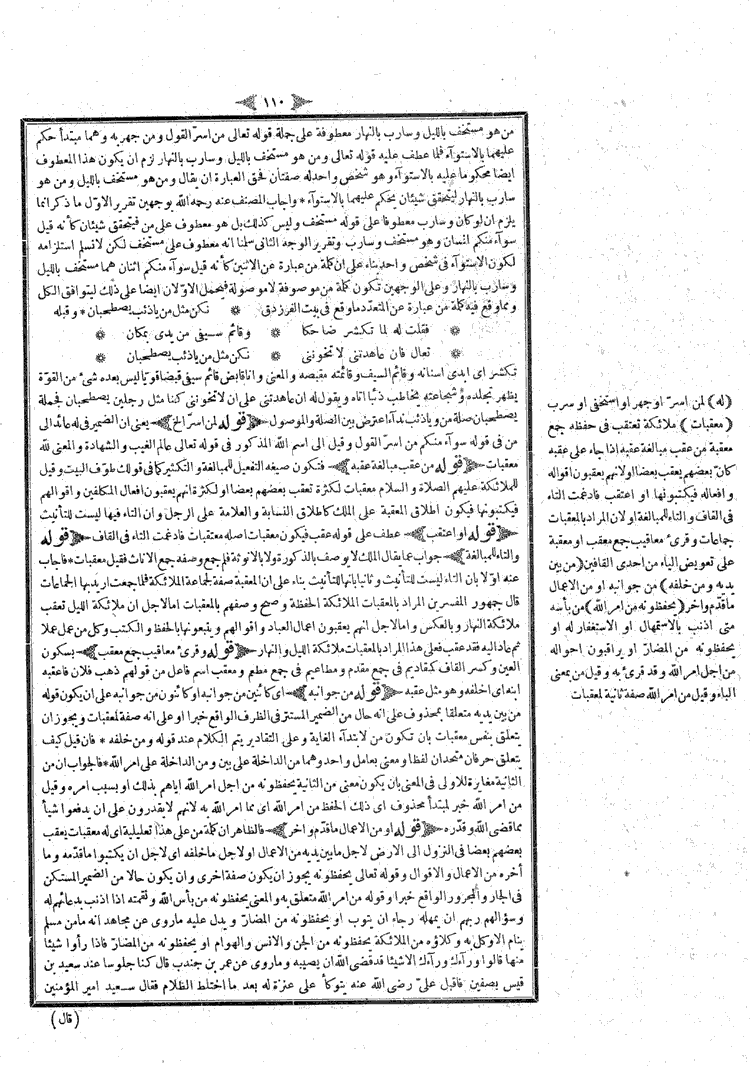 ١١٠
من هو مستخف بالليل وسارب بالنهار معطوفة على جملة قوله تعالى من اسرّ القول ومن جهر به وهما مبتدأ حكم
عليهما بالاستوآء فلما عطف عليه قوله تعالى ومن هو مستخف بالليل وسارب بالنهار لزم ان يكون هذا المعطوف
ايضا محكوما عليه بالاستوآء وهو شخص واحد له صفتان فحق العبارة ان يقال ومن هو مستخف بالليل ومن هو
سارب بالنهار ليتحقق شيئان يحكم عليهما بالاستوآء * واجاب المصنف عنه رحمه الله بوجهين تقرير الاوّل ما ذكر انما
يلزم ان لو كان وسارب معطوفا على قوله مستخف وليس كذلك بل هو معطوف على من فيتحقق شيئان كأنه قيل
سوآء منكم انسان وهو مستخف وسارب وتقرير الوجه الثانى سلمنا انه معطوف على مستخف لكن لانسلم استلزامه
لكون الاستوآء فى شخص واحد بناء على ان كلمة من عبارة عن الاثنين كأنه قيل سوآء منكم اثنان هما مستخف بالليل
وسارب بالنهار وعلى الوجهين تكون كلمة من موصوفة لا موصولة فيحمل الاولان ايضا على ذلك ليتوافق الكل
ومما وقع فيه كلمة من عبارة عن المتعدّد ما وقع فى بيت الفرزدق * نكن مثل من ياذئب يصطحبان * وقبله
* فقلت له لما تكشر ضاحكا * وقائم سيفى من يدى بمكان *
* تعال فان عاهدتنى لاتخوننى * نكن مثل من ياذئب يصطحبان *
تكشر اى ابدى اسنانه وقائم السيف وقائمته مقبضه والمعنى وانا قابض قائم سيفى قبضا قويا ليس بعده شىء من القوة
يظهر تجلده وشجاعته يخاطب ذئبا اتاه ويقول له ان عاهدتنى على ان لاتخوننى كنا مثل رجلين يصطحبان فجملة
يصطحبان صلة من وياذئب ندآء اعترض بين الصلة والموصول ﴿قوله لمن اسرّ الخ﴾ يعنى ان الضمير فى له عائد الى
من فى قوله سوآء منكم من اسرّ القول وقيل الى اسم الله المذكور فى قوله تعالى عالم الغيب والشهادة والمعنى لله
معقبات ﴿قوله من عقب مبالغة عقبه﴾ فتكون صيغه التفعيل للمبالغة والتكثير كما فى قولك طوّف البيت وقيل
للملائكة عليهم الصلاة والسلام معقبات لكثرة تعقب بعضهم بعضا او لكثرة انهم يعقبون افعال المكلفين واقوالهم
فيكتبونها فيكون اطلاق المعقبة على الملك كاطلاق النسابة والعلامة على الرجل وان التاء فيها ليست للتأنيث
﴿قوله او اعتقب﴾ عطف على قوله عقب فيكون معقبات اصله معتقبات فادغمت التاء فى القاف ﴿قوله
والتاء للمبالغة﴾ جواب عما يقال الملك لا يوصف بالذكورة ولا بالانوثة فلم جمع وصفه جمع الاناث فقيل معقبات * فاجاب
عنه اوّلا بان التاء ليست للتأنيث وثانيا بانها للتأنيث بناء على ان المعقبة صفة لجماعة الملائكة فلما جمعت اريد بها الجماعات
قال جمهور المفسرين المراد بالمعقبات الملائكة الحفظة وصح وصفهم بالمعقبات اما لاجل ان ملائكة الليل تعقب
ملائكة النهار وبالعكس واما لاجل انهم يعقبون اعمال العباد واقوالهم ويتبعونها بالحفظ والكتب وكل من عمل عملا
ثم عاد اليه فقد عقب فعلى هذا المراد بالمعقبات ملائكة الليل والنهار ﴿قوله وقرئ معاقيب جمع معقب﴾ بسكون
العين وكسر القاف كقاديم فى جمع مقدم ومطاعيم فى جمع مطعم ومعقب اسم فاعل من قولهم ذهب فلان فاعقبه
ابنه اى خلفه وهو مثل عقبه ﴿قوله من جوانبه﴾ اى كائنين من جوانبه او كائنون من جوانبه على ان يكون قوله
من بين يديه متعلقا بمحذوف على انه حال من الضمير المستتر فى الظرف الواقع خبرا او على انه صفة لمعقبات ويجوز ان
يتعلق بنفس معقبات بان تكون من لابتدآء الغاية وعلى التقادير يتم الكلام عند قوله ومن خلفه * فان قيل كيف
يتعلق حرفان متحدان لفظا ومعنى بعامل واحد وهما من الداخلة على بين ومن الداخلة على امر الله * فالجواب ان من
الثانية مغايرة للاولى فى المعنى بان يكون معنى من الثانية يحفظونه من اجل امر الله اياهم بذلك او بسبب امره وقيل
من امر الله خبر لمبتدأ محذوف اى ذلك الحفظ من امر الله اى مما امر الله به لانهم لا يقدرون على ان يدفعوا شيأ
مما قضى الله وقدره ﴿قوله او من الاعمال ما قدّم واخر﴾ فالظاهر ان كلمة من على هذا تعليلية اى له معقبات يعقب
بعضهم بعضا فى النزول الى الارض لاجل ما بين يديه من الاعمال او لاجل ما خلفه اى لاجل ان يكتبوا ما قدّمه وما
أخره من الاعمال والاقوال وقوله تعالى يحفظونه يجوز ان يكون صفة اخرى وان يكون حالا من الضمير المستكن
فى الجار والمجرور الواقع خبرا وقوله من امر الله متعلق به والمعنى يحفظونه من بأس الله ونقمته اذا اذنب بدعائهم له
وسؤالهم ربهم ان يمهله رجاء ان يتوب او يحفظونه من المضارّ ويدل عليه ماروى عن مجاهد انه مامن مسلم
ينام الا وكل به وكلاؤه من الملائكة يحفظونه من الجن والانس والهوام او يحفظونه من المضارّ فاذا رأوا شيئا
منها قالوا ورآءك ورآءك الا شيئا قد قضى الله ان يصيبه وماروى عن عمر بن جندب قال كنا جلوسا عند سعيد بن
قيس بصفين فاقبل علىّ رضى الله عنه يتوكأ على عنزة له بعد ما اختلط الظلام فقال سعيد امير المؤمنين
(قال)
(له) لمن اسرّ او جهر او استخفى او سرب
(معقبات) ملائكة تعتقب فى حفظه جمع
معقبة من عقب مبالغة عقبه اذا جاء على عقبه
كأنّ بعضهم يعقب بعضا او لانهم يعقبون اقواله
و افعاله فيكتبونها او اعتقب فادغمت التاء
فى القاف والتاء للمبالغة او لان المراد بالمعقبات
جماعات وقرئ معاقيب جمع معقب او معقبة
على تعويض الياء من احدى القافين (من بين
يديه ومن خلفه) من جوانبه او من الاعمال
ما قدّم واخر (يحفظونه من امر الله) من بأسه
متى اذنب بالاستمهال او الاستغفار له او
يحفظونه من المضارّ او يراقبون احواله
من اجل امر الله وقد قرئ به وقيل من بمعنى
الباء وقيل من امر الله صفة ثانية لمعقبات